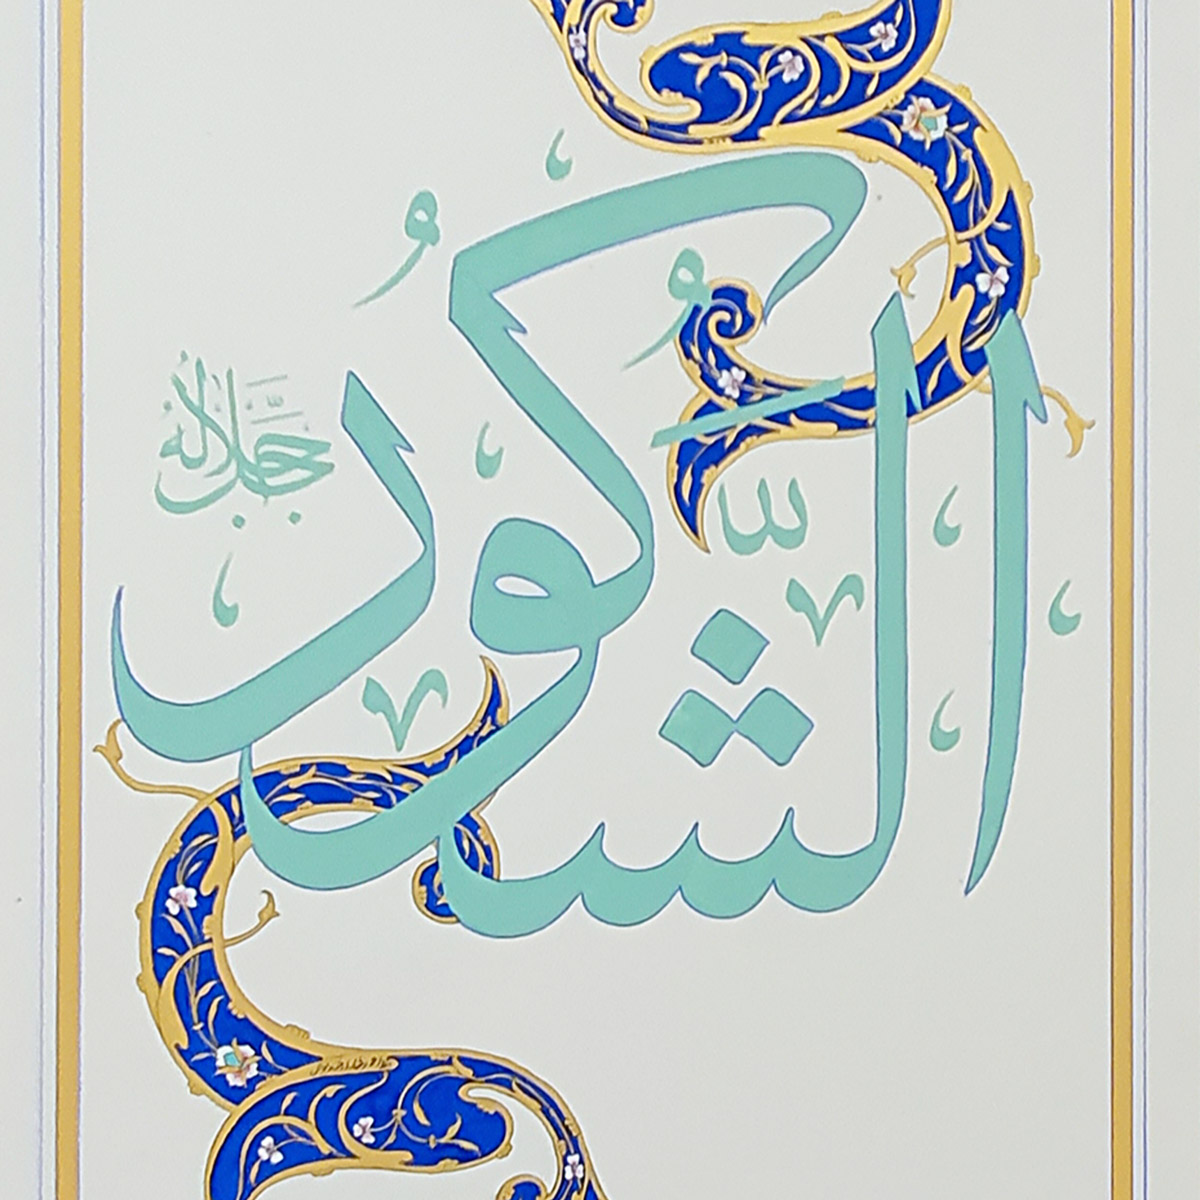 الشَّكُورُ
جَلَّ جَلَالُهُ